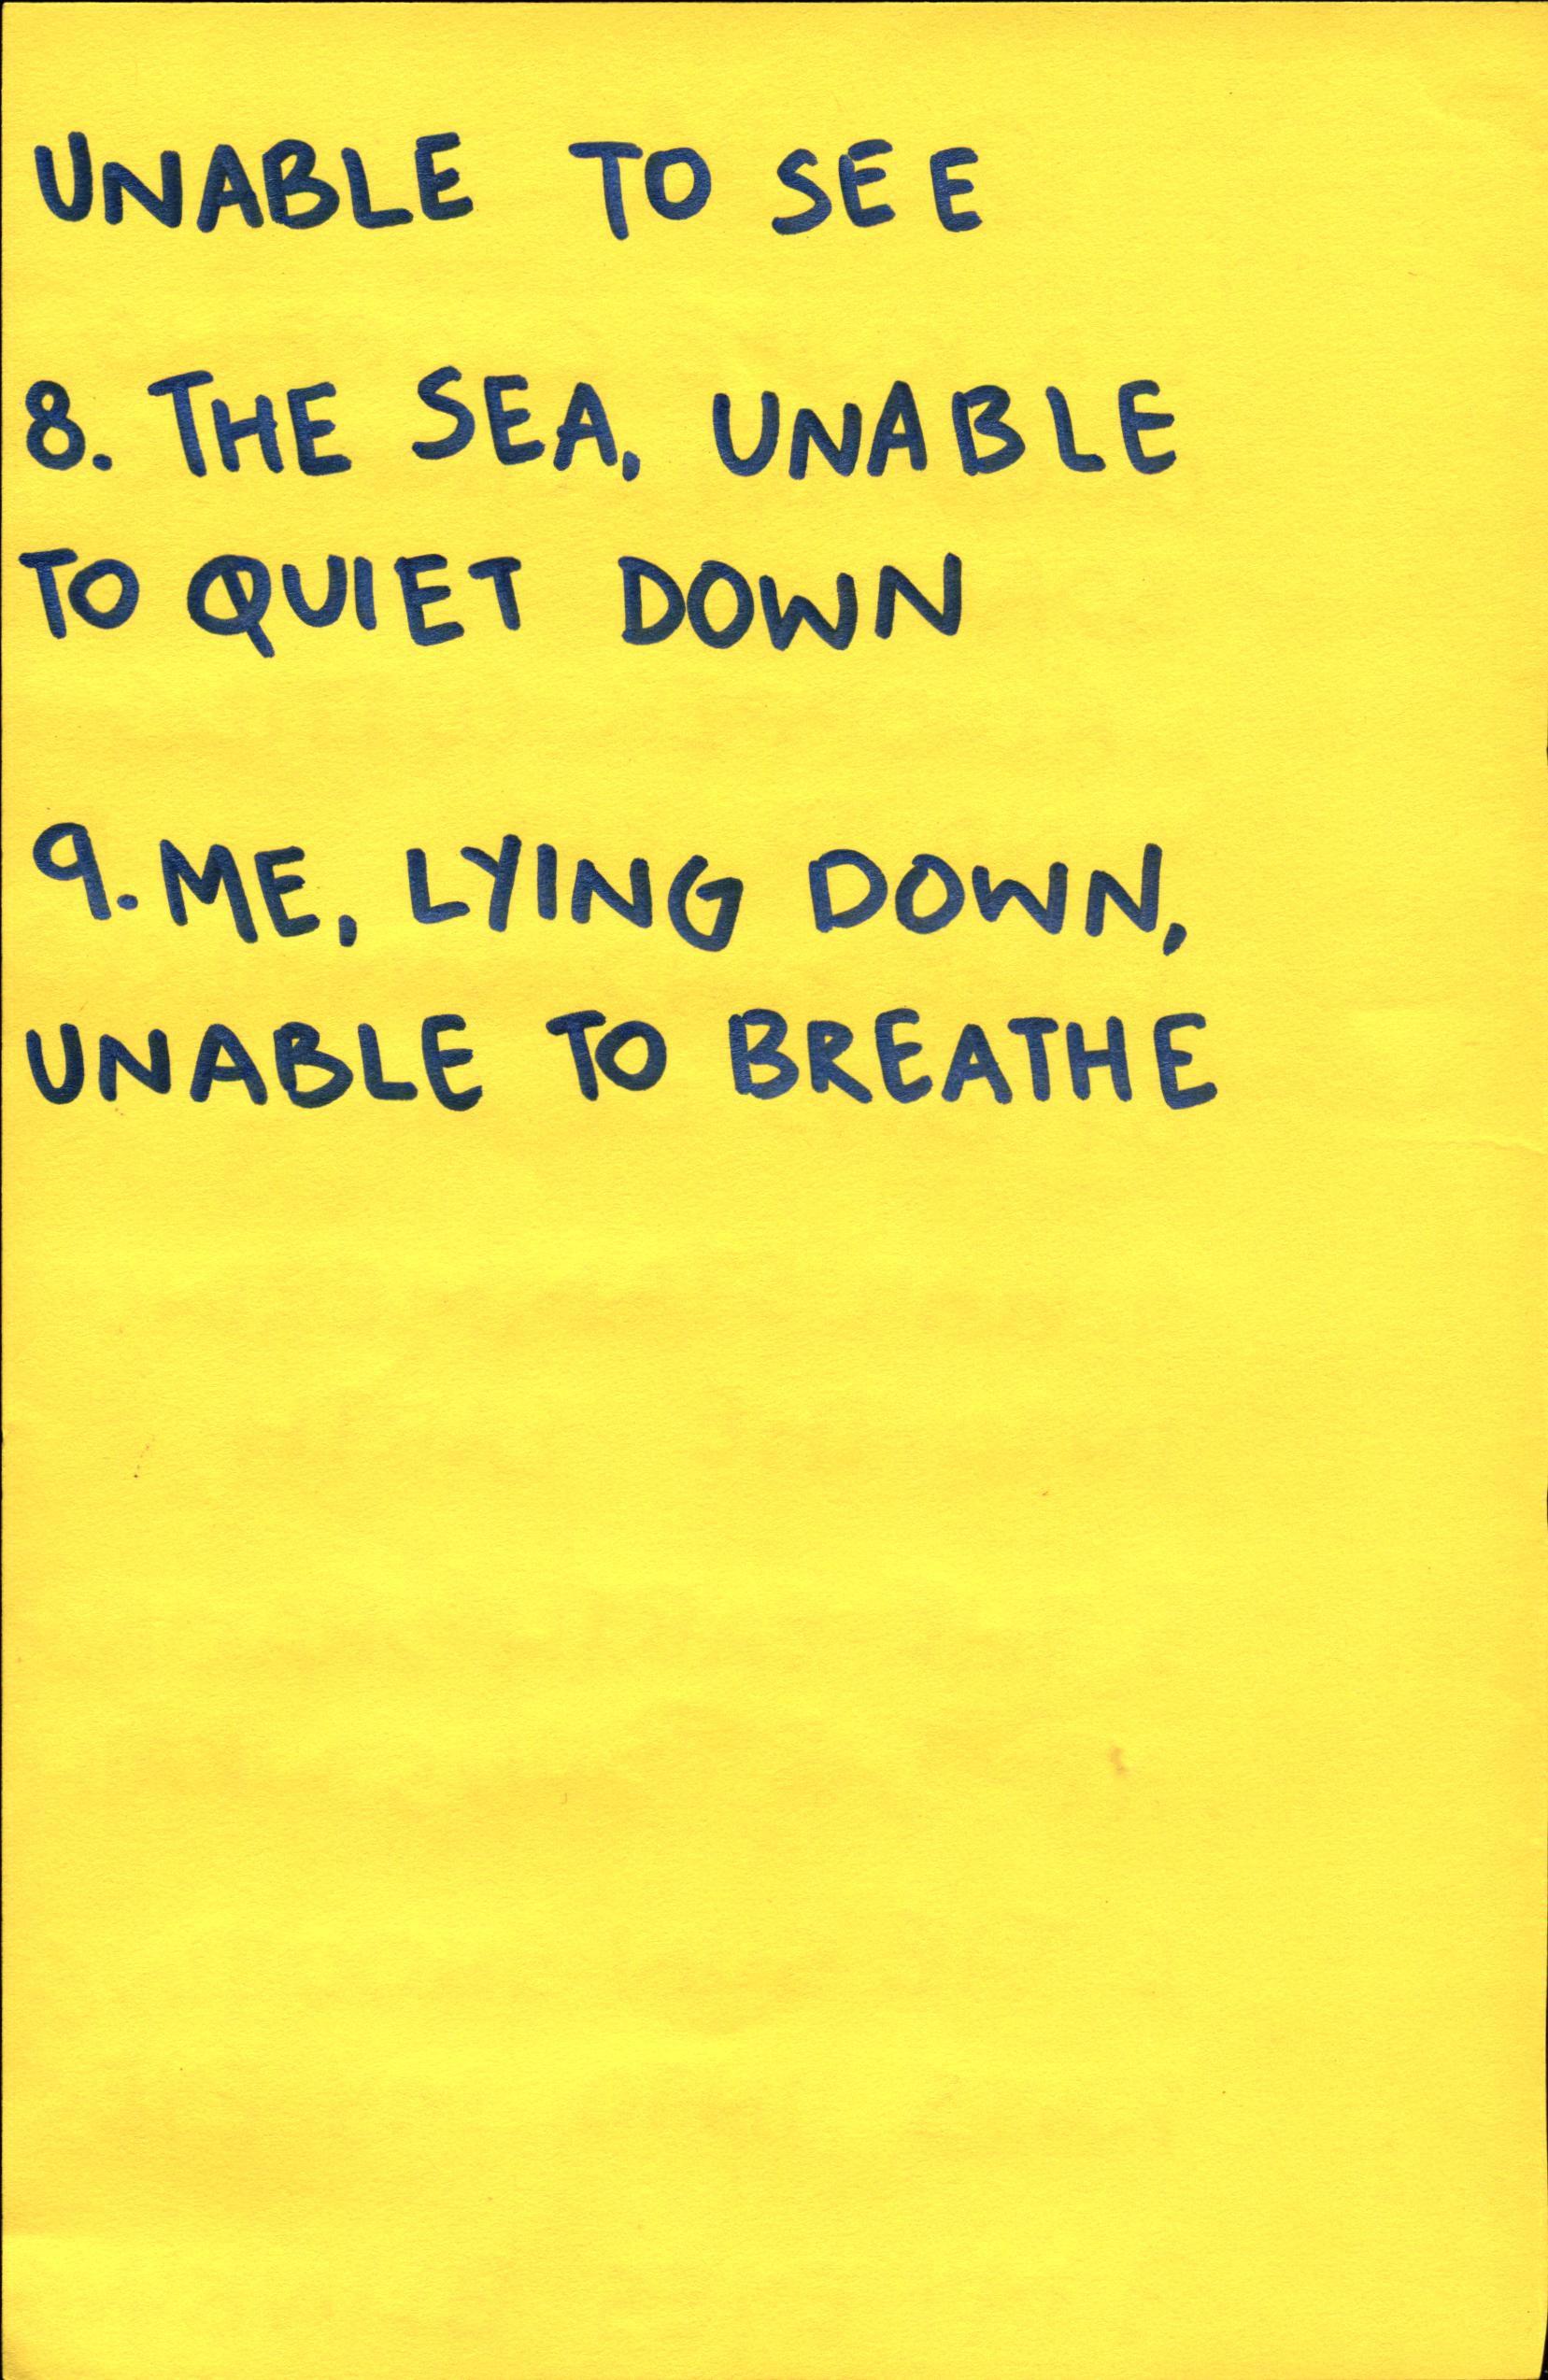 UNABLE TO SEE
8. THE SEA, UNABLE
TO QUIET DOWN
9. ME, LYING DOWN,
UNABLE TO BREATHE